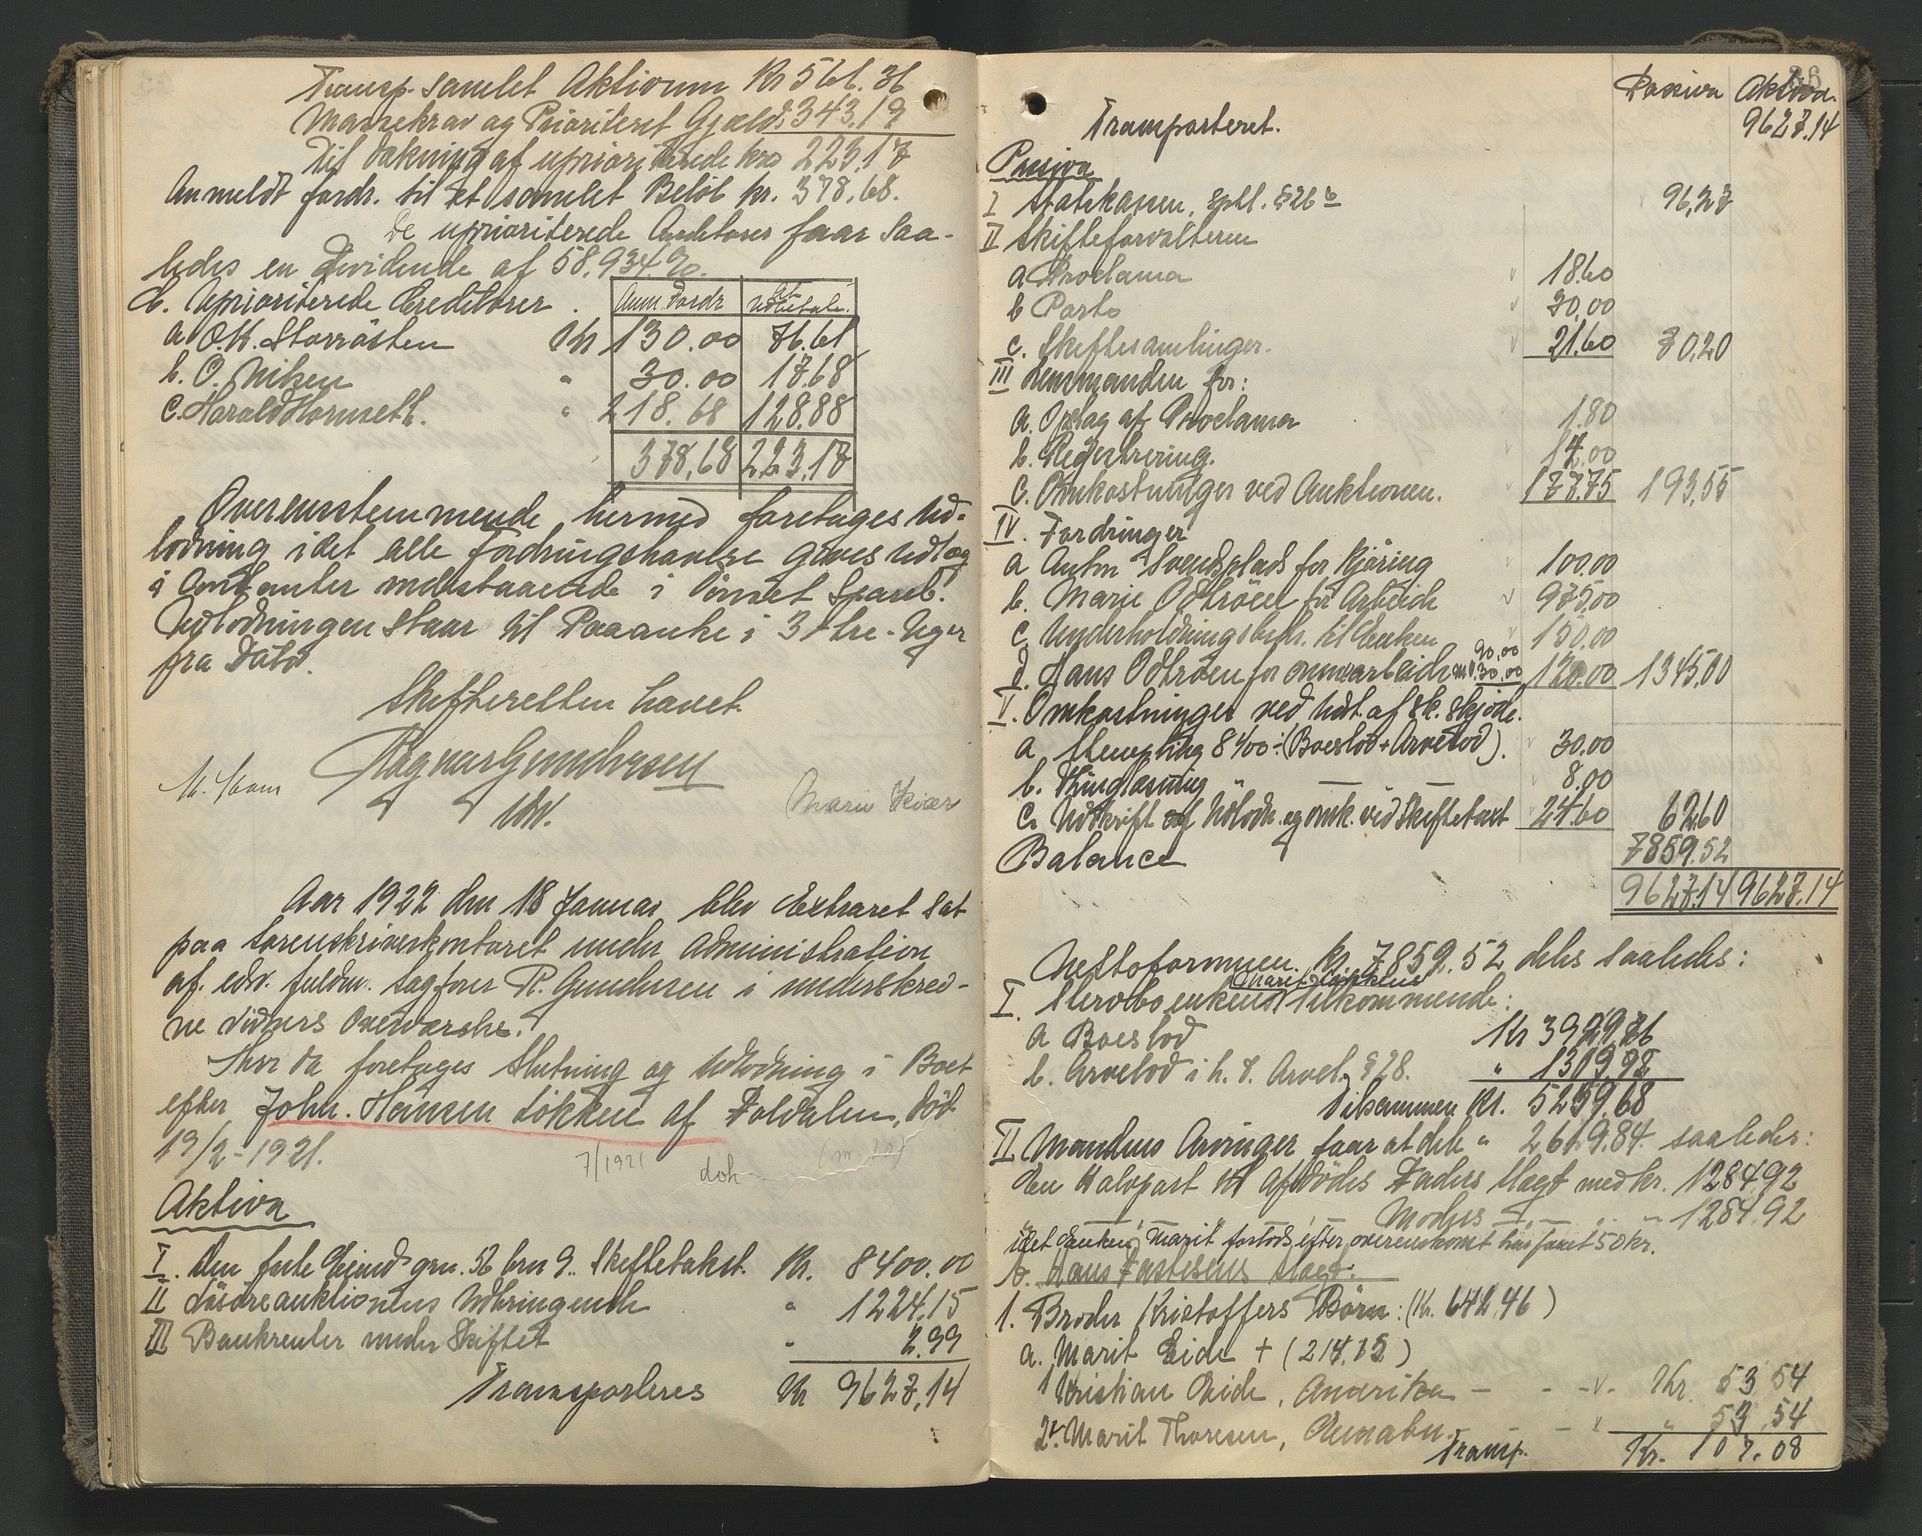 Transp. samlet Aktivum Kr 566.36
Massekrav og Prioriteret Gjæld 343.19
Til dækning af uprioriterede krav 223.17
Anmeldt fordr. til et samlet Beløb kr. 378.68.
De uprioriterede Creditorer faar saa-
ledes en Dividende af 58,934 %.
C. Uprioriterede Creditorer. Anm. Fordr Udbetale.
a O.K. Storrøsten Kr 130.00 76.61
b. O. Nilsen " 30.00 17.68
c. Harald Hornseth. " 218.68 128.88
378,68 223,17
Overensstemmende hermed foretages Ud-
lodning idet alle fordringshavere gives Udlæg
i Contanter indestaaende i Spareb.
Udlodningen staar til Paaanke i 3 tre Uger
fra Dato.
Skifteretten hævet.
Ragnar Gundersen
edv.
Marie Kvær
Aar 1922 den 18 Januar blev Extraret sat
paa Sorenskriverkontoret under administration
af edv. fuldm. sagfører R. Gundersen i underskrev-
ne Vidners Overværelse.
Hvor da foretages Slutning og Udlodning i Boet
efter John Hansen Løkken af Foldalen, død
19/2-1921.
7/1921 doh
Aktiva
I. Den faste Eiend. grn. 56 brn 9. Skiftetakst. Kr. 8400.00
II Løsøreauktionens Udbringende " 1224,15
III Bankrenter under Skiftet " 2.99
Transporteres Kr 9627,14
Passiva Aktiva.
Transporteret. 9627.14
Passiva
I Statskassen, spll. §26 b 96,27
II Skifteforvalteren
a Proclama 18.60
b Porto 30,00
c. Skiftesamlinger. 21.60 70,20
III Lensmanden for:
a. Opslag af Proclama 1.80
b. Registrering. 14.00
c. Omkostninger ved Auktionen. 177.75 193,55
IV. Fordringer
a Anton Svendsplads for kjøring 100.00
b. Marie Odtrøen for Arbeide 975,00
c. Underholdningsbidr. til Enken 150.00
d. Hans Odtrøen for onnearbeide 90,00 30,00 120.00 1345,00
V. Omkostninger ved Udst. af sk. skjøde.
a. Stempling 8400 ÷ (Boeslod + Arvelod). 30.00
b. Thinglæsning " 8.00
c. Udskrift af Udlodn. og omk. ved Skiftetaxt 24.60 62.60
Balance 7859.52
9627.14 9627.14
Nettoformuen kr. 7859.52 deles saaledes:
I. Stervboenkens tilkommende:
a Boeslod Kr 3929.76
b. Arvelod i h. t. Arvel. §28. " 1309,92
Tilsammen Kr. 5239.68
II Mandens Arvinger faar at dele " 2619.84 saaledes:
den Halvpart til Afdødes Faders Slægt med kr. 1284.92
" " " Moders " " 1284.92
idet Enken Marit forlods efter overenskomst har faaet 50 kr.
1. Broder Kristoffers Børn: (Kr. 642.46)
a. Marit Eide + (214.15)
1 Kristian Eide, Amerika - - - Kr. 53.54
2. Marit Thoresen, " 53.54
Transp. Kr. 107.08